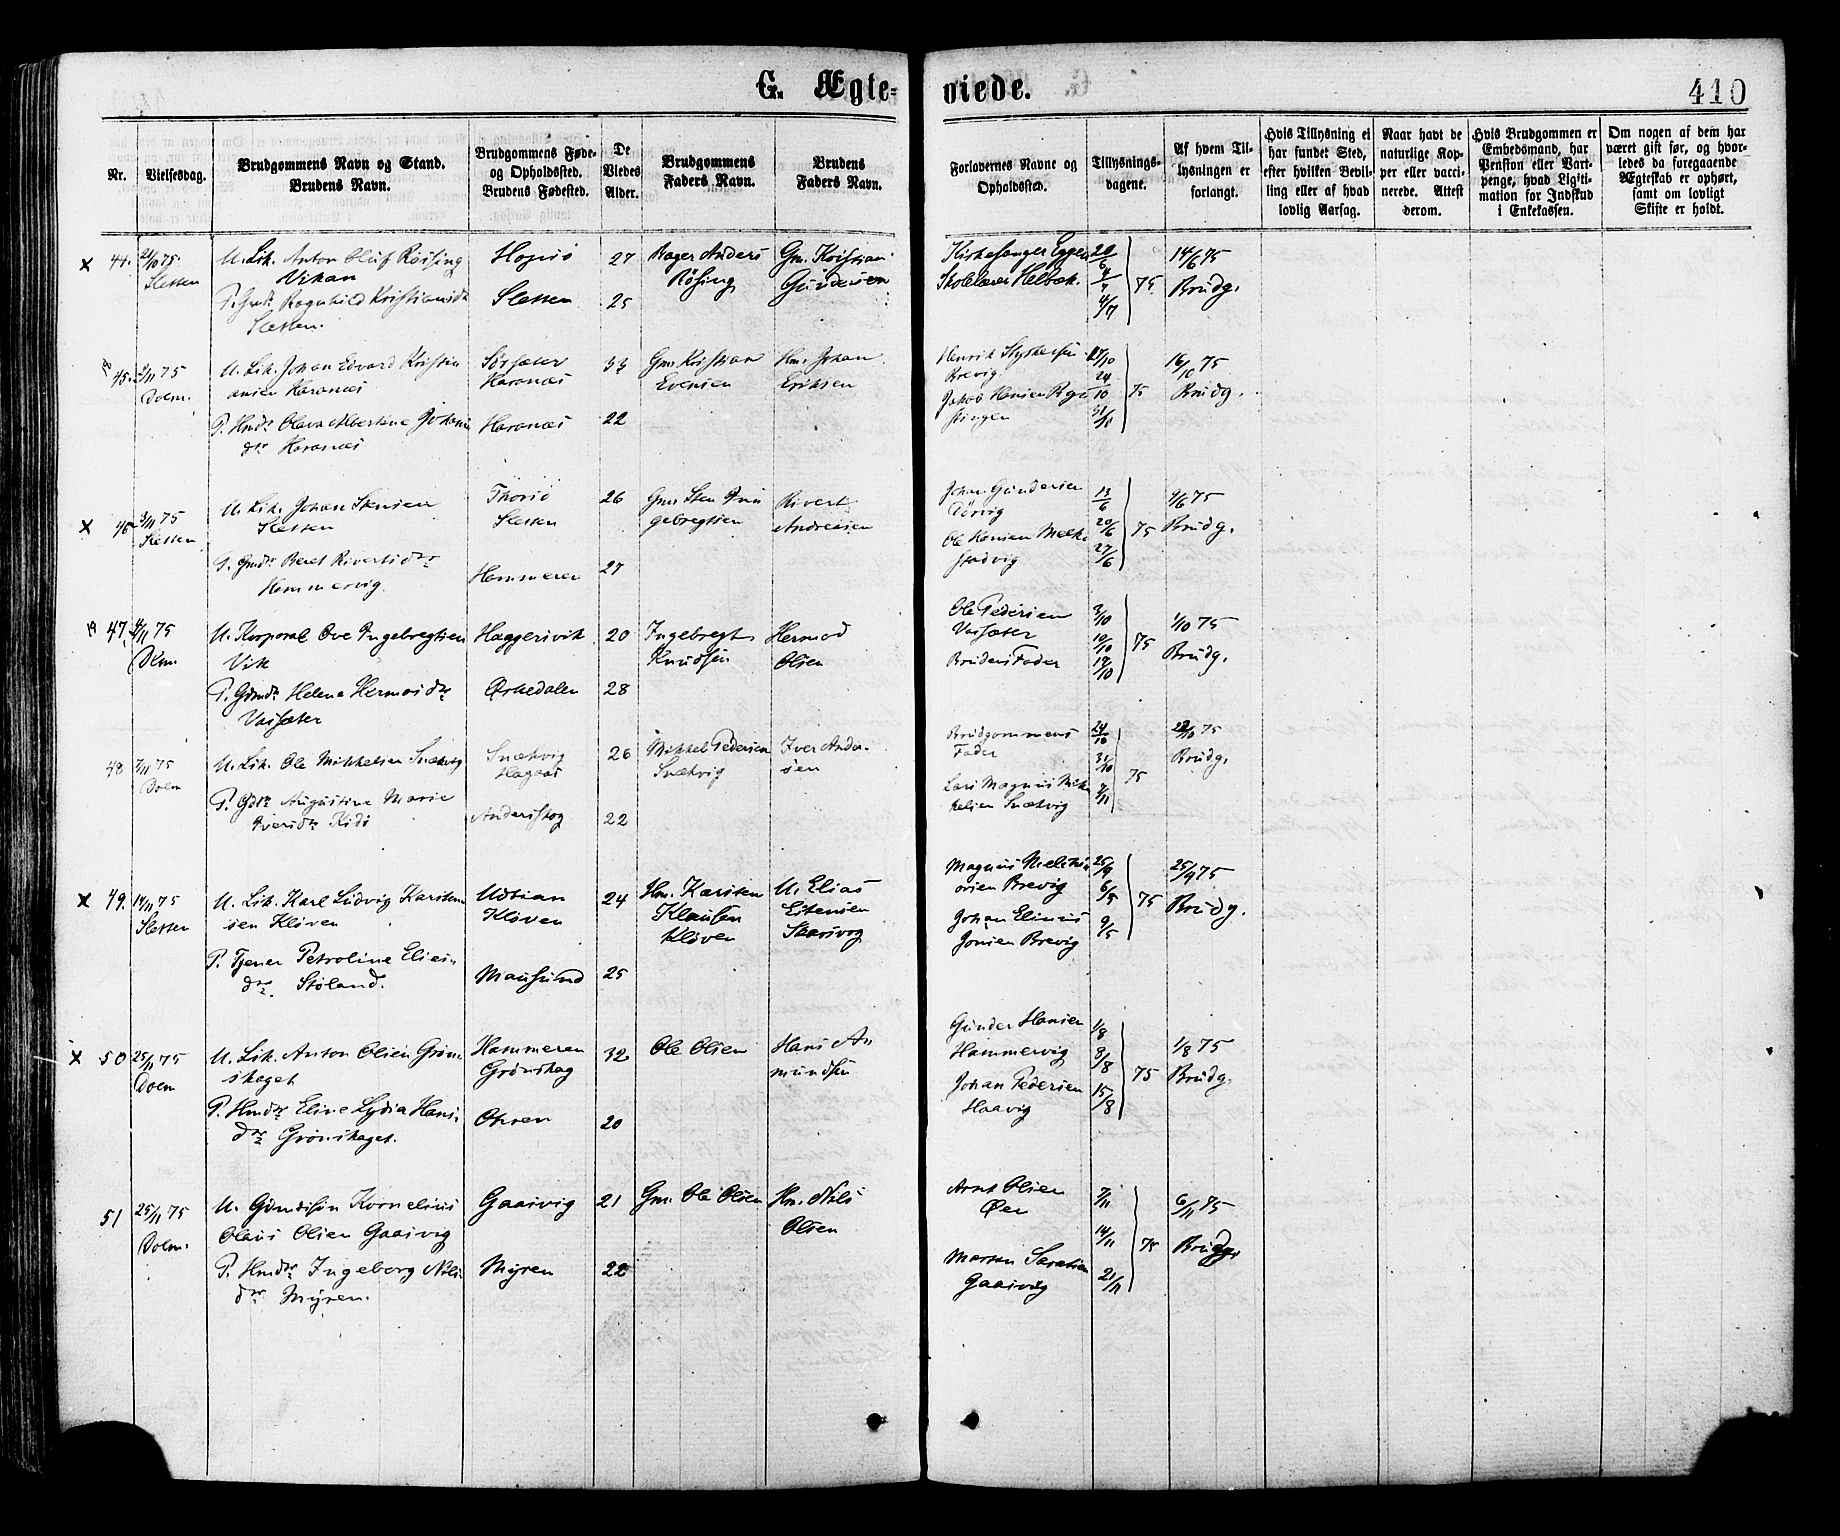 G. Ægte-
viede.
410
Nr.
Vielsesdag.
Brudgommens Navn og Stand.
Brudens Navn.
Brudgommens Føde-
og Opholdssted.
Brudens Fødested.
De
Viedes
Alder.
Brudgommens
Faders Navn.
Brudens
Faders Navn.
Forlovernes Navne og
Opholdssted.
Tillysnings-
dagene.
Af hvem Til-
lysningen er
forlangt.
Hvis Tillysning ei
har fundet Sted,
efter hvilken Bevil-
ling eller af hvad
lovlig Aarsag.
Naar havt de
naturlige Kop-
per eller vacci-
nerede. Attest
derom.
Hvis Brudgommen er
Embedsmand, har
Pension eller Vart-
penge, hvad Ligiti-
mation for Indskud
i Enkekassen.
Om nogen af dem har
været gift før, og hvor-
ledes da foregaaende
Ægteskab er ophørt,
samt om lovligt
Skifte er holdt.
x 44.
Sletten
U. Lik. Anton Oluf Røising
Vikan
P. Gmdr. Ragnhild Kristiansdr
Sletten.
Sletten
27
25
Anders
Røsing
Gm. Kristian
Gundersen
Kirkesanger Eggen
Skolelærer Helbak
20/6
4/7
75
14/6 75
Brudg.
45. 2/11 75
Dolm.
U. Lik. Johan Edvard Kristin
ansen Karanæs
P. Hmdr Olava Albertine Johans
dr Karanæs
Sørsæter
Karanæs
Karanæs
33
22
Gm. Kristian
Evensen
Hm. Johan
Eriksen
Henrik
Brevig
Jakob Hansen
17/10
24/10
31/10
75
16/10 75
Brudg.
x 46 3/11 75
Sletten
U. Lik. Johan Stensen
Sletten
P. Gmdr Beret Rivertsdr
Hammervig
Thorsø
Sletten
Hammeren
26
27
Gm. Sten Ing
gebregtsen
Rivert
Andreasen
Johan Gundersen
Ole Hansen Melk
stadvig
13/6
20/6
27/6
75
9/6 75
Brudg.
47. 4/11 75
Dlm.
U. Korporal Ove Ingebregtsen
Vik
P. Gdmdr Helena Hermosdr
Vassæter
Haggersvik
Ørkedalen
20
28
Ingebregt
Knudsen
Hermod
Olsen
Ole Pedersen
Vassæter
Brudens Fader
3/10
10/10
17/10
75
1/10 75
Brudg.
48 7/11 75
Dolm
U. Lik. Ole Mikkelsen Snækvig
P. Gdr Augustine Marie
Iversdr Kidø
Snækvig
Hagaas
Andersskog
26
22
Mikkel Pedersen
Snækvig
Iver Ander-
sen
Brudgommens
Fader
Lars Magnus Mik
kelsen Snækvig
24/10
31/10
7/11
75
22/10 75
Brudg.
x 49. 14/11 75
Sletten
U. Lik. Karl Ludvig Karsten
sen Kløven
P. Tjener Petroline Elias-
dr. Støland.
Udsian
Kløven
Mausund
24
25
Hm. Karsten
Klausen
Kløven
U. Elias
Estensen
Magnus
Brevig
Johan Elinus
Jonsen Brevig
25/9
6/5
9/5
75
25/9 75
Brudg.
x 50 25/11 75
Dolm
U. Lik. Anton Olsen Grøn
skaget
P. Hmdr Eline Lydia Hans-
dr Grønskaget.
Hammeren
Grønskag
32
20
Ole Olsen
Hans A
mundsen
Gunder Hansen
Hammervig
Johan Pedersen
Haavig
1/8
8/8
15/8
75
1/8 75
Brudg.
51 25/11 75
Dolm.
U. Gmdsøn Kornelius
Olaus Olsen Gaasvig
P. Hmdr Ingeborg Nils
dr Myren.
Gaasvig
Myren
21
22
Gm. Ole Olsen
Hm. Nils
Olsen
Arnt Olsen
Øen
Morten
Gaasvig
7/11
14/11
21/11
75
6/11 75
Brudg.